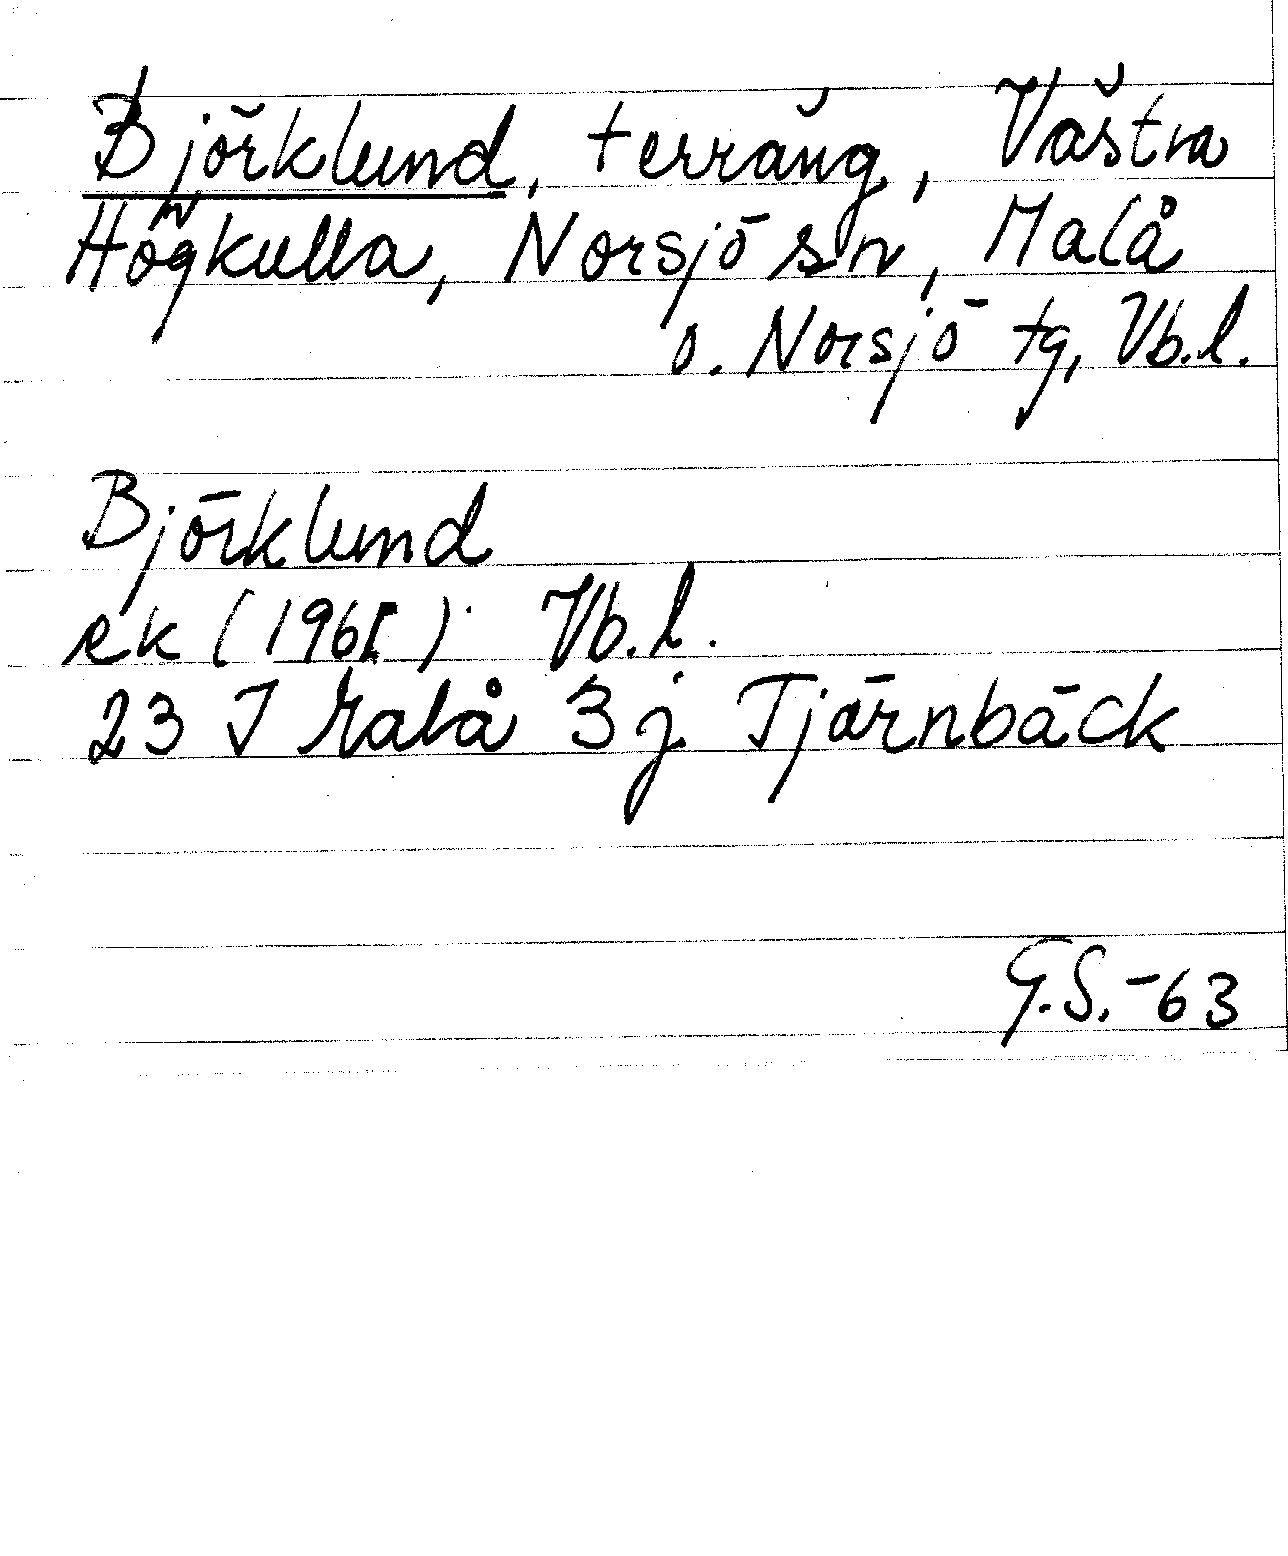 Björklund, terräng, Västra
Högkulla, Norsjö sn, Malå
o. Norsjö tg, Vb.l.
Björklund
ek (1961) Vb.l.
23 I Malå 3 j Tjärnbäck
G.S.-63